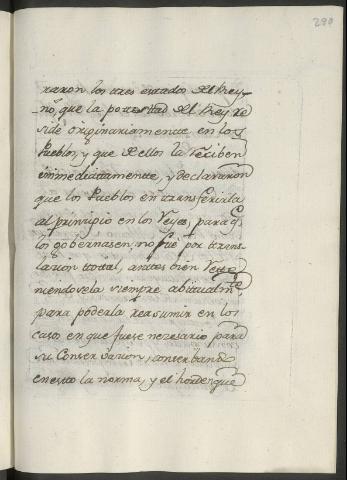 290
raron los tres estados del Rey-
no, que la potestad del Rey re
side originariamente en los
Pueblos, y que de ellos la reciben
inmediatamente, y declararon
que los Pueblos en transferirla
al principio en los Reyes, para q̃
los gobernasen, no fué por trans-
lacion total, antes bien rete-
niendosela siempre abitualm.te
para poderla reasumir en los
casos en que fuese nezesario para
su Conservacion, conserbando
en esto la norma, y el horden que